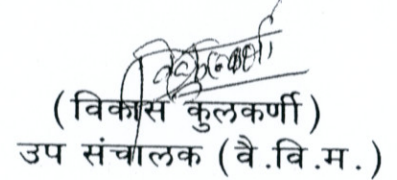 (विकास कुलकर्णी)
उप संचालक (वै.वि.म.)